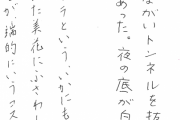 ながいトンネルを抜
あった。夜の底が白
ラという、いかにも
た美花にふさわし
が、端的にいうコス